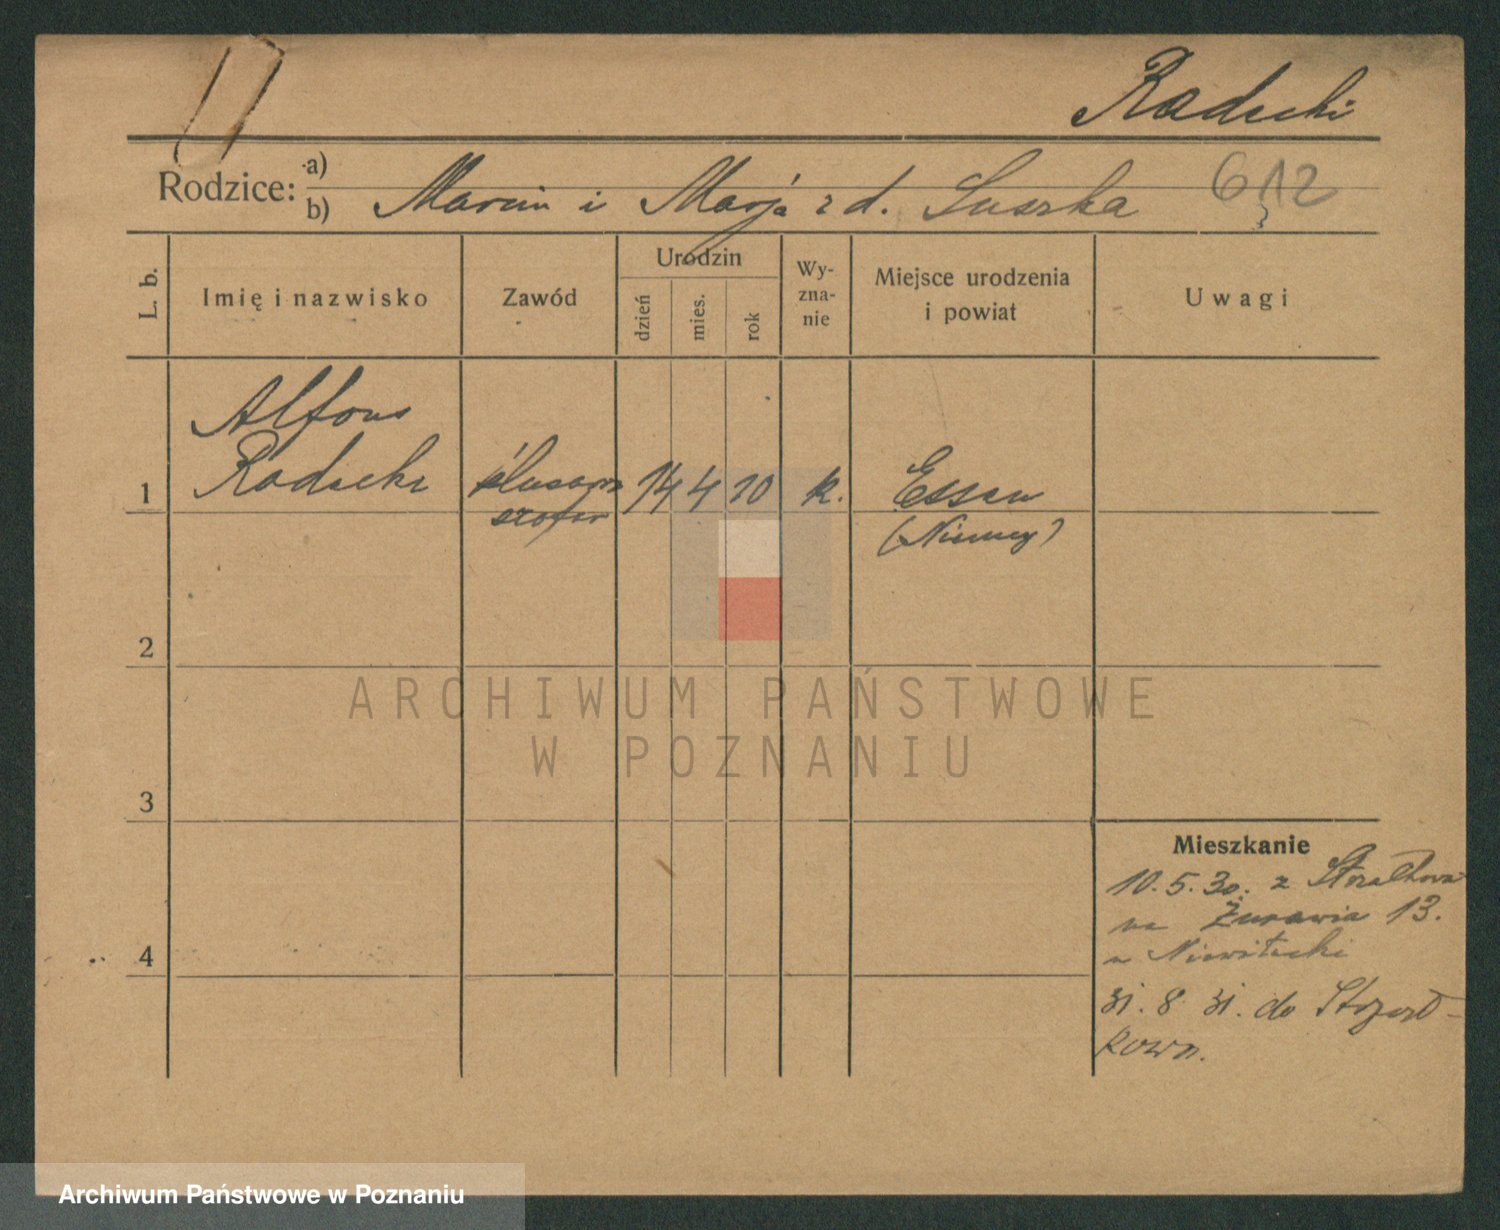 Radecki
Rodzice: a)
b) Marcin i Marja z d. Suszka 612
L. b. Imię i nazwisko Zawód Urodzin dzień mies. rok Wyznanie Miejsce urodzenia i powiat Uwagi
Alfons
1 Radecki ślusarz 14 4 10 k. Essen
szofer (Niemcy)
2
ARCHIWUM PAŃSTWOWE
W POZNANIU
3
Mieszkanie
10.5.30. z Strzałkowa
na Żurawia 13.
4 u
31. 8 31. do Strzał-
kowa.
Archiwum Państwowe w Poznaniu